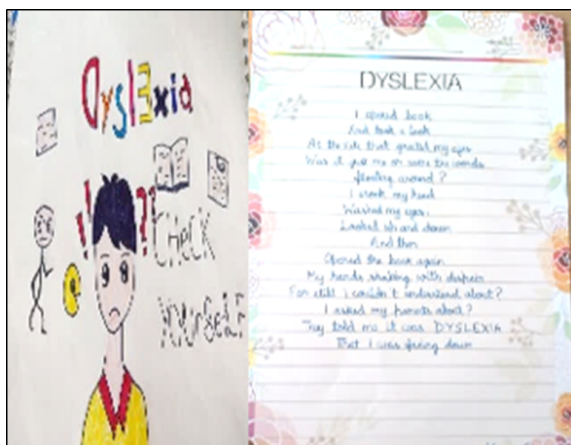 DyslExia
!! ??
CHECK
YOURSELF
DYSLEXIA
I opened book
And took a look
At the that my eyes
Was it just me or were the words
floating around?
I shook my head
Washed my eyes.
Looked and down
And then
Opened the book again
My hands shaking with despair
For still i couldn't understand about?
I asked my parents about?
They told me it was DYSLEXIA
That I was facing down